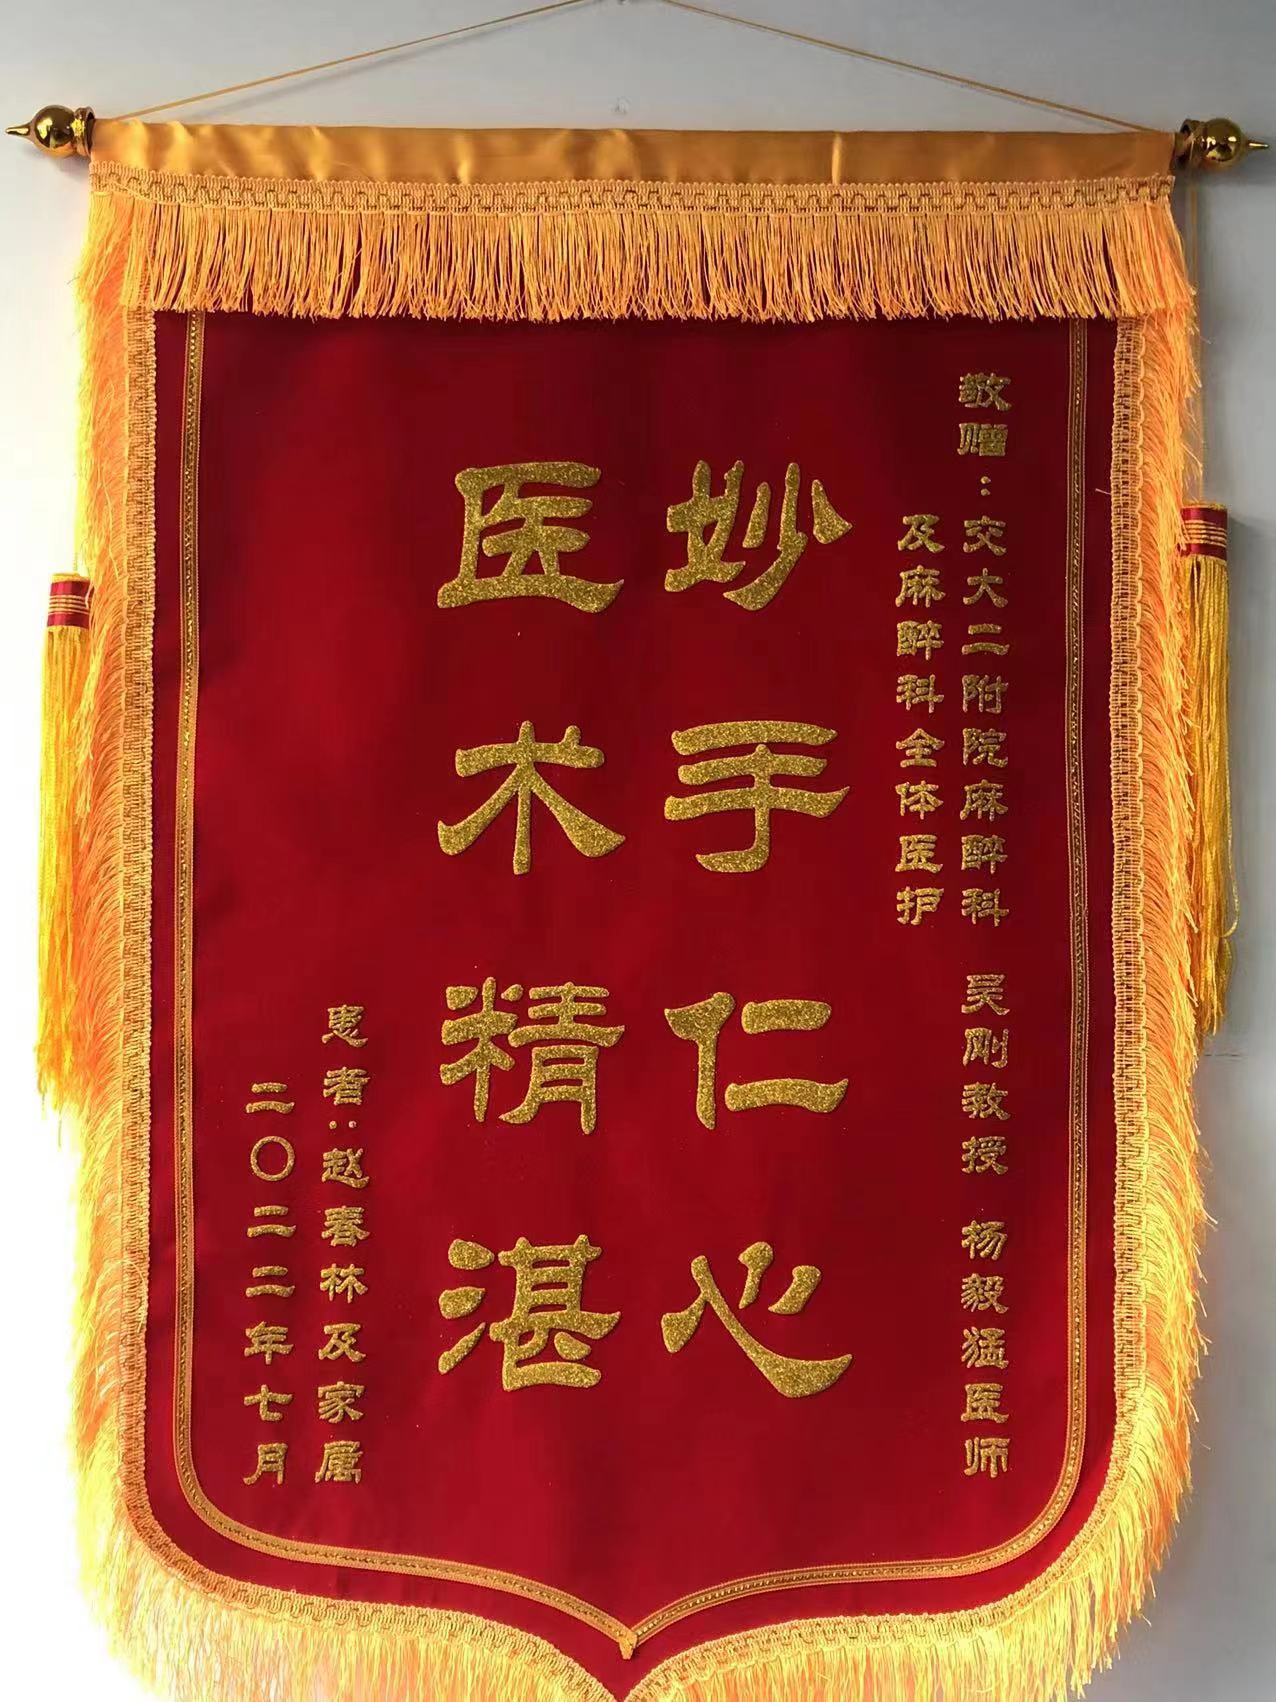 敬赠：交大二附院麻醉科 吴刚教授 杨毅猛医师
及麻醉科全体医护
妙手仁心
医术精湛
患者：赵春林及家属
二〇二二年七月